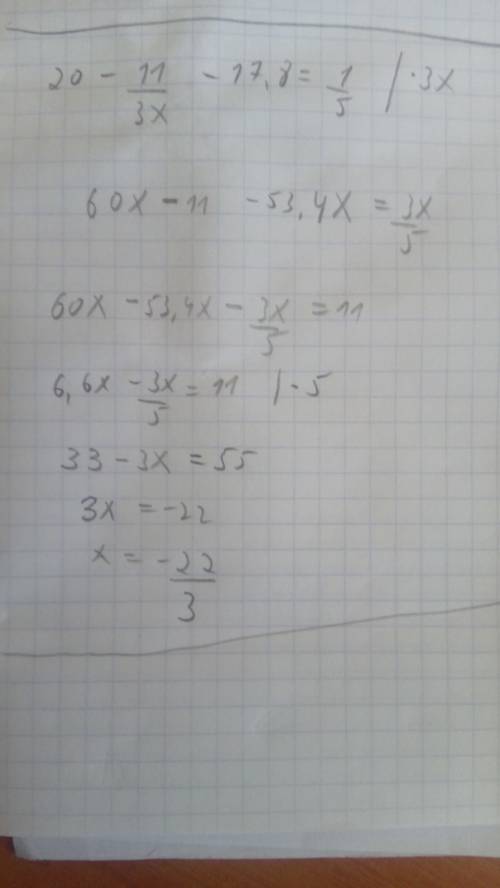 20 - 11/3x - 17,8 = 1/5 | ·3x
60x - 11 - 53,4x = 3x/5
60x - 53,4x - 3x/5 = 11
6,6x - 3x/5 = 11 | · 5
33 - 3x = 55
3x = -22
x = -22/3